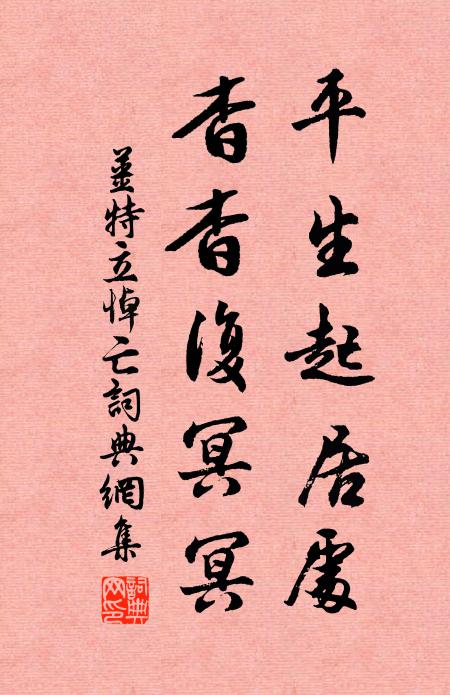 平生起居處
杳杳復冥冥
薑特立悼亡詞典網集
詞典
网印